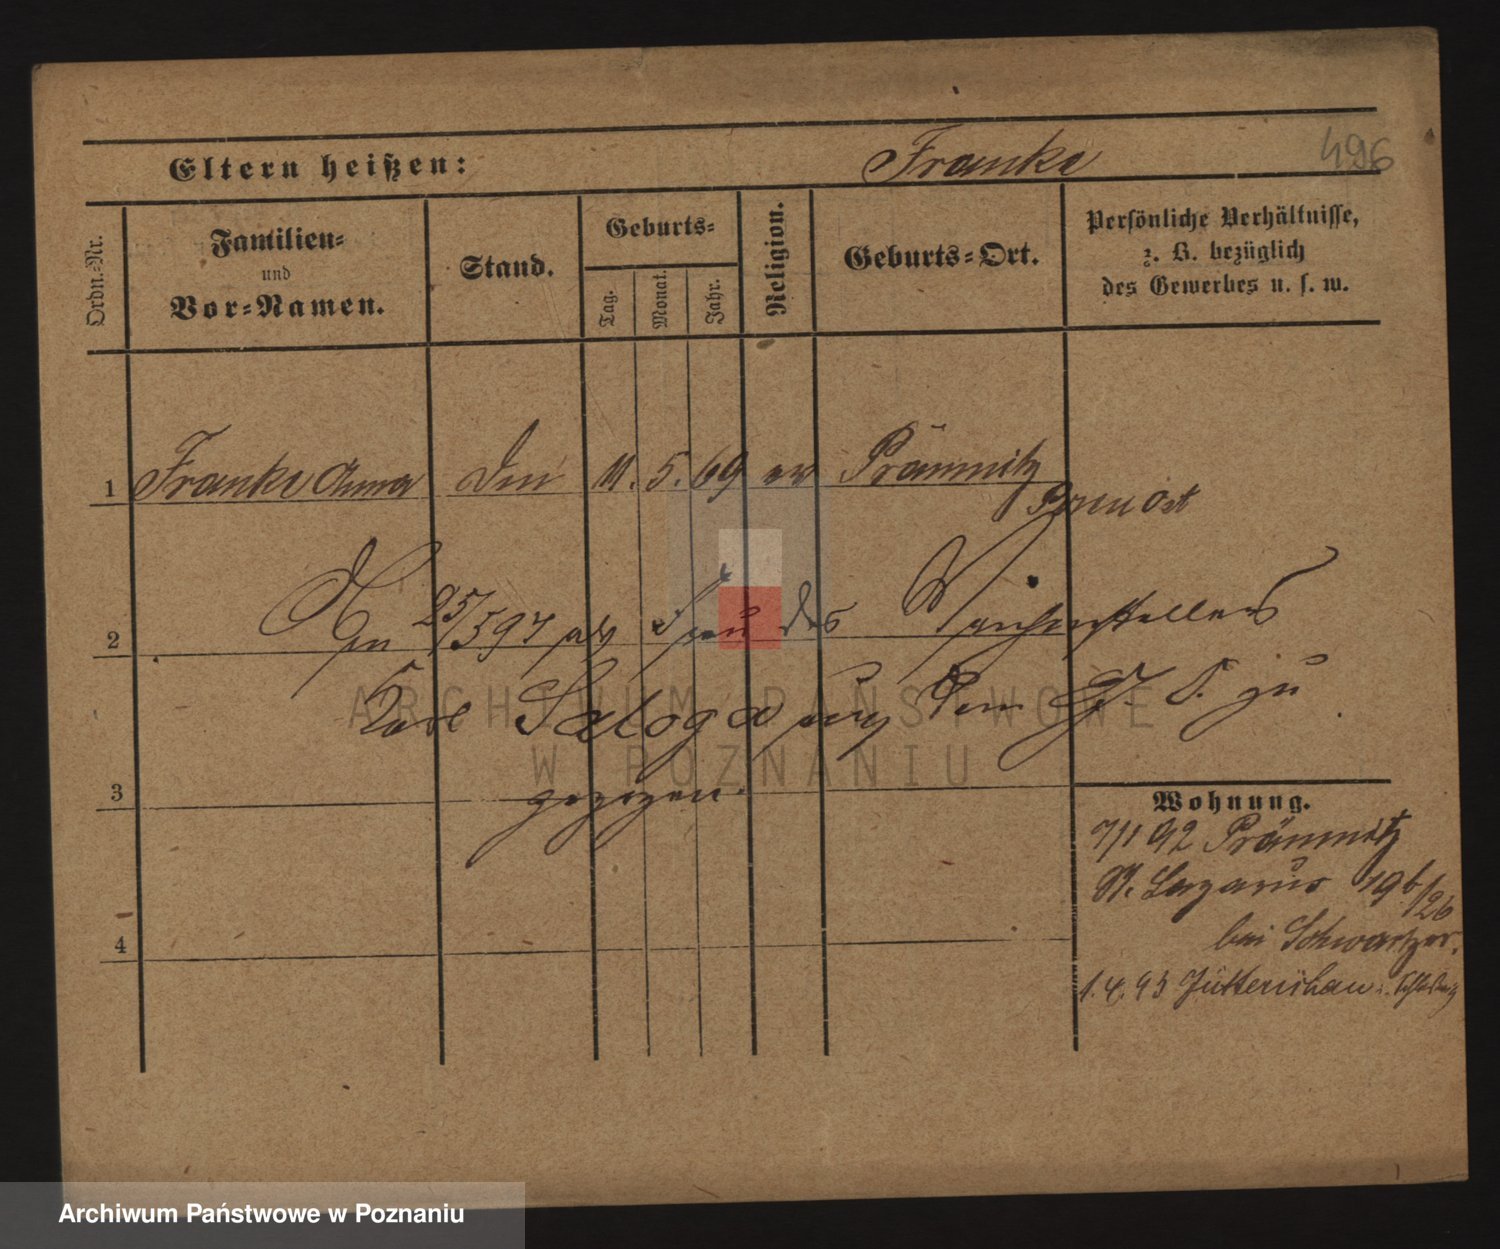 496
Eltern heißen: Franke
Ordn.=Nr.
Familien=
und
Vor=Namen.
Stand.
Geburts=
Tag.
Monat.
Jahr.
Religion.
Geburts=Ort.
Persönliche Verhältnisse,
z. B. bezüglich
des Gewerbes u. s. w.
1 Franke Anna 11. 5. 69 ev Prämnitz
Posen Ost
2 25/5 97 als Frau des Weichenstellers
Karl Saloga auf dem zu
3 gezogen.
4
Wohnung.
7/1 92 Prämnitz
St. Lazarus 19b/26
bei Schwarzer.
1. 4. 93
ARCHIWUM PAŃSTWOWE
W POZNANIU
Archiwum Państwowe w Poznaniu